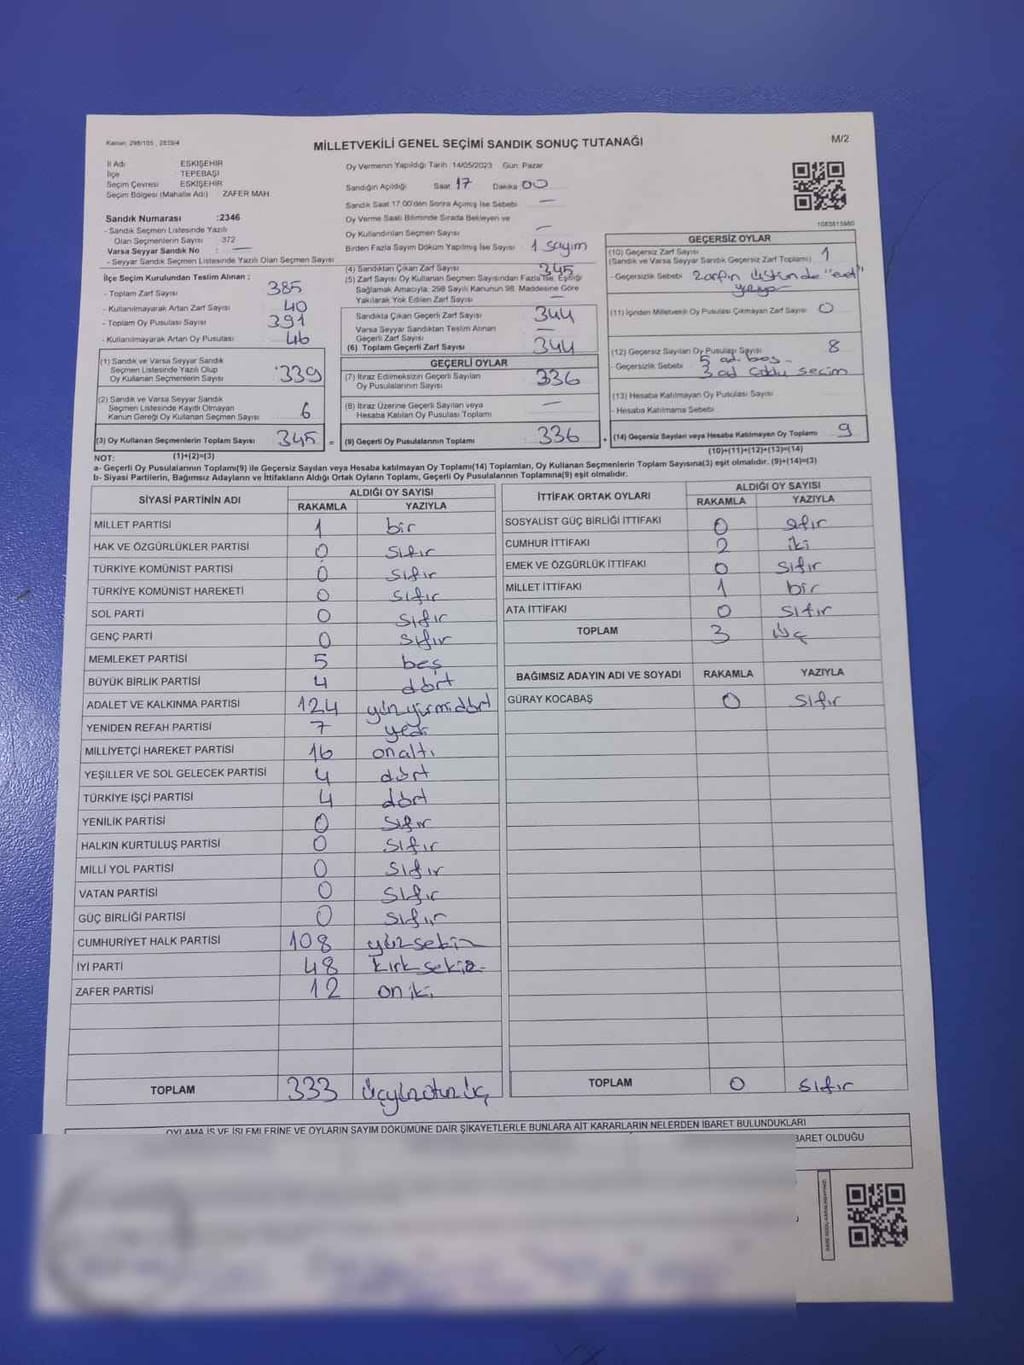 Kanun: 298/105 , 2839/4
MİLLETVEKİLİ GENEL SEÇİMİ SANDIK SONUÇ TUTANAĞI
M/2
İl Adı ESKİŞEHİR
İlçe TEPEBAŞI
Seçim Çevresi ESKİŞEHİR
Seçim Bölgesi (Mahalle Adı) ZAFER MAH.
Sandık Numarası :2346
- Sandık Seçmen Listesinde Yazılı
Olan Seçmenlerin Sayısı 372
Varsa Seyyar Sandık No : —
- Seyyar Sandık Seçmen Listesinde Yazılı Olan Seçmen Sayısı
Oy Vermenin Yapıldığı Tarih :14/05/2023 Gün: Pazar
Sandığın Açıldığı Saat 17 Dakika 00
Sandık Saat 17:00'den Sonra Açılmış İse Sebebi —
Oy Verme Saati Bitiminde Sırada Bekleyen ve
Oy Kullandırılan Seçmen Sayısı —
Birden Fazla Sayım Döküm Yapılmış İse Sayısı 1 sayım
İlçe Seçim Kurulundan Teslim Alınan :
- Toplam Zarf Sayısı 385
- Kullanılmayarak Artan Zarf Sayısı 40
- Toplam Oy Pusulası Sayısı 391
- Kullanılmayarak Artan Oy Pusulası 46
(1) Sandık ve Varsa Seyyar Sandık
Seçmen Listesinde Yazılı Olup
Oy Kullanan Seçmenlerin Sayısı 339
(2) Sandık ve Varsa Seyyar Sandık
Seçmen Listesinde Kayıtlı Olmayan
Kanun Gereği Oy Kullanan Seçmen Sayısı 6
(3) Oy Kullanan Seçmenlerin Toplam Sayısı 345 =
(1)+(2)=(3)
(4) Sandıktan Çıkan Zarf Sayısı 345
(5) Zarf Sayısı Oy Kullanan Seçmen Sayısından Fazla ise, Eşitliği
Sağlamak Amacıyla; 298 Sayılı Kanunun 98. Maddesine Göre
Yakılarak Yok Edilen Zarf Sayısı —
Sandıkta Çıkan Geçerli Zarf Sayısı 344
Varsa Seyyar Sandıktan Teslim Alınan
Geçerli Zarf Sayısı —
(6) Toplam Geçerli Zarf Sayısı 344
GEÇERLİ OYLAR
(7) İtiraz Edilmeksizin Geçerli Sayılan
Oy Pusulalarının Sayısı 336
(8) İtiraz Üzerine Geçerli Sayılan veya
Hesaba Katılan Oy Pusulası Toplamı —
(9) Geçerli Oy Pusulalarının Toplamı 336 +
1083515980
GEÇERSİZ OYLAR
(10) Geçersiz Zarf Sayısı
(Sandık ve Varsa Seyyar Sandık Geçersiz Zarf Toplamı) 1
- Geçersizlik Sebebi Zarfın üstünde
(11) İçinden Milletvekili Oy Pusulası Çıkmayan Zarf Sayısı 0
(12) Geçersiz Sayılan Oy Pusulası Sayısı 8
Geçersizlik Sebebi 5 ad. boş
3 ad. çoklu seçim
(13) Hesaba Katılmayan Oy Pusulası Sayısı
- Hesaba Katılmama Sebebi
(14) Geçersiz Sayılan veya Hesaba Katılmayan Oy Toplamı 9
(10)+(11)+(12)+(13)=(14)
NOT:
a- Geçerli Oy Pusulalarının Toplamı(9) ile Geçersiz Sayılan veya Hesaba katılmayan Oy Toplamı(14) Toplamları, Oy Kullanan Seçmenlerin Toplam Sayısına(3) eşit olmalıdır. (9)+(14)=(3)
b- Siyasi Partilerin, Bağımsız Adayların ve İttifakların Aldığı Ortak Oyların Toplamı, Geçerli Oy Pusulalarının Toplamına(9) eşit olmalıdır.
SİYASİ PARTİNİN ADI ALDIĞI OY SAYISI
RAKAMLA YAZIYLA
MİLLET PARTİSİ 1 bir
HAK VE ÖZGÜRLÜKLER PARTİSİ 0 sıfır
TÜRKİYE KOMÜNİST PARTİSİ 0 sıfır
TÜRKİYE KOMÜNİST HAREKETİ 0 sıfır
SOL PARTİ 0 sıfır
GENÇ PARTİ 0 sıfır
MEMLEKET PARTİSİ 5 beş
BÜYÜK BİRLİK PARTİSİ 4 dört
ADALET VE KALKINMA PARTİSİ 124 yüzyirmidört
YENİDEN REFAH PARTİSİ 7 yedi
MİLLİYETÇİ HAREKET PARTİSİ 16 onaltı
YEŞİLLER VE SOL GELECEK PARTİSİ 4 dört
TÜRKİYE İŞÇİ PARTİSİ 4 dört
YENİLİK PARTİSİ 0 sıfır
HALKIN KURTULUŞ PARTİSİ 0 sıfır
MİLLİ YOL PARTİSİ 0 sıfır
VATAN PARTİSİ 0 sıfır
GÜÇ BİRLİĞİ PARTİSİ 0 sıfır
CUMHURİYET HALK PARTİSİ 108 yüzsekiz
İYİ PARTİ 48 kırksekiz
ZAFER PARTİSİ 12 oniki
TOPLAM 333 üçyüzotuzüç
İTTİFAK ORTAK OYLARI ALDIĞI OY SAYISI
RAKAMLA YAZIYLA
SOSYALİST GÜÇ BİRLİĞİ İTTİFAKI 0 sıfır
CUMHUR İTTİFAKI 2 iki
EMEK VE ÖZGÜRLÜK İTTİFAKI 0 sıfır
MİLLET İTTİFAKI 1 bir
ATA İTTİFAKI 0 sıfır
TOPLAM 3 üç
BAĞIMSIZ ADAYIN ADI VE SOYADI RAKAMLA YAZIYLA
GÜRAY KOCABAŞ 0 sıfır
TOPLAM 0 sıfır
OYLAMA İŞ VE İŞLEMLERİNE VE OYLARIN SAYIM DÖKÜMÜNE DAİR ŞİKAYETLERLE BUNLARA AİT KARARLARIN NELERDEN İBARET BULUNDUKLARI
BARET OLDUĞU